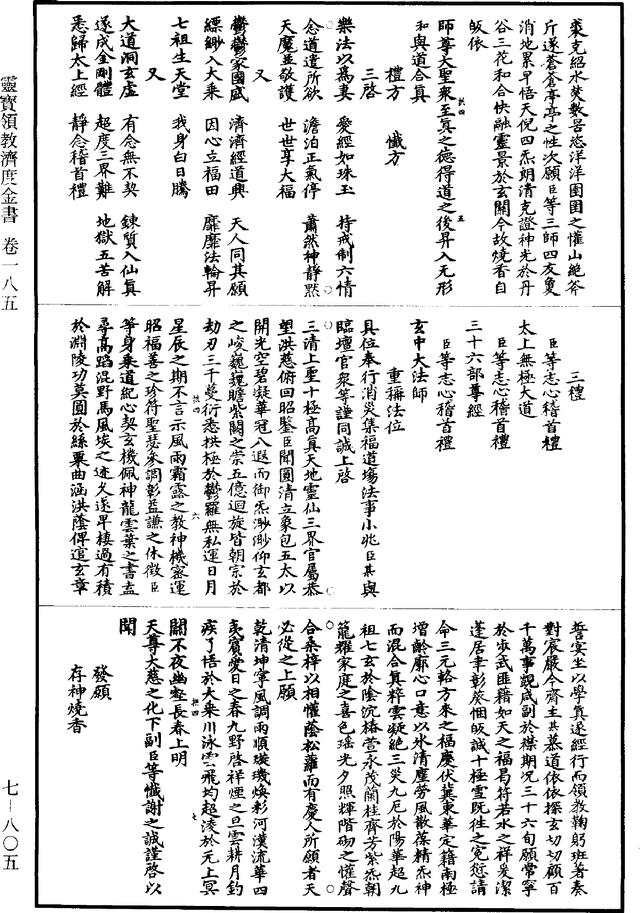 裘克紹水焚數罟恣洋洋圉圉之懽山絕斧
斤遂蒼蒼亭亭之性次願臣等三師四友夐
消地累早悟天倪四炁朗清克證神光於丹
谷三花和合快融靈景於玄關今故燒香自
皈依
師尊大聖衆至真之德得道之後昇入无形
和與道合真
禮方　懺方
三啓
樂法以爲妻　愛經如珠玉　持戒制六情
念道遣所欲　澹泊正氣停　蕭然神靜默
天魔並敬護　世世享大福
又
鬱鬱家國盛　濟濟經道興　天人同其願
縹緲入大乘　因心立福田　靡靡法輪昇
七祖生天堂　我身白日騰
又
大道洞玄虛　有念無不契　鍊質入仙真
遂成金剛體　超度三界難　地獄五苦解
悉歸太上經　靜念稽首禮
三禮
臣等志心稽首禮
太上無極大道
臣等志心稽首禮
三十六部尊經
臣等志心稽首禮
玄中大法師
重稱法位
具位奉行消災集福道場法事小兆臣某與
臨壇官衆等謹同誠上啓
三清上聖十極高真天地靈仙三界官屬恭
望洪慈俯回昭鑒臣聞圓清立象包五太以
開光空碧凝華冠八遐而御炁渺渺仰玄都
之峻巍巍瞻紫闕之崇五億迴旋皆朝宗於
劫刃三千蔓衍悉拱極於鬱羅無私運日月
星辰之期不言示風雨霜露之教神機密運
昭福善之珍符聖瑟參調彰益謙之休徵臣
等身乘道紀心契玄機佩神龍雲葉之書盍
尋高蹈混野馬風埃之迹久遂早棲過有積
於淵陵功莫圓於絲粟曲涵洪蔭俾逭玄章
誓宴坐以學真遂經行而領教鞠躬班著奏
對宸嚴今齋主某慕道依依探玄切切顧百
千萬事覬咸副於襟期況三十六旬願常寧
於步武匪藉如天之福曷符若水之祥爰潔
蓬居聿彰葵悃皈誠十極雲既往之冤愆請
命三元輅方來之福慶伏冀東華定籍南極
增齡廓心口意以氷清塵勞風散葆精炁神
而混合真粹雲凝絕三災九厄於陽華超九
祖七玄於陰沉椿萱永茂蘭桂齊芳紫炁朝
籠耀家庭之喜色瑤光夕照輝階砌之懽聲
合桑梓以相懽蔭松蘿而有慶人所願者天
必從之上願
乾清坤寧風調雨順璇璣煥彩河漢流華四
夷賓愛日之春九野啓祥煙之旦雲耕月釣
疾了悟於大乘川泳雲飛均超淩於元上冥
關不夜幽壑長春上明
天尊大慈之化下副臣等懺謝之誠謹啓以
聞
發願
存神燒香
靈寶領教濟度金書　卷一八五
七－八〇五